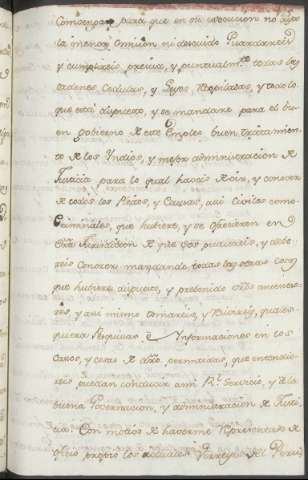 para que en su execucion no aya
la menor omision ni descuido Guardareis
y cumplireis precisa, y puntualmte todas las
ordenes Cedulas, y Leyes, Rexpidadas, y todo lo
que está dispuesto, y se mandare para el bu
en govierno de este Empleo buen tratamien
to de los Yndios, y mejor administracion de
Justicia para lo qual haveis de oir, y conocer
de todos los Pleitos, y Causas, assi Civiles como
Criminales, que hubiere, y se ofrecieren en
dha Jurisdicion de
reis conocer mandando todas las otras cosas
que hubiere dispuesto, y prevenido vros anteceso
res, y assi mismo tomareis, y
quiera Pesquisas è Ynformaciones en los
Casos, y cosas de dro permitidas, que entendie
reis puedan conducir a mi Rl. Servicio, y á la
buena Governacion, y administracion de Justi
cia: Con motivo de haverme representado de
oficio proprio los actuales Virreyes del Perú